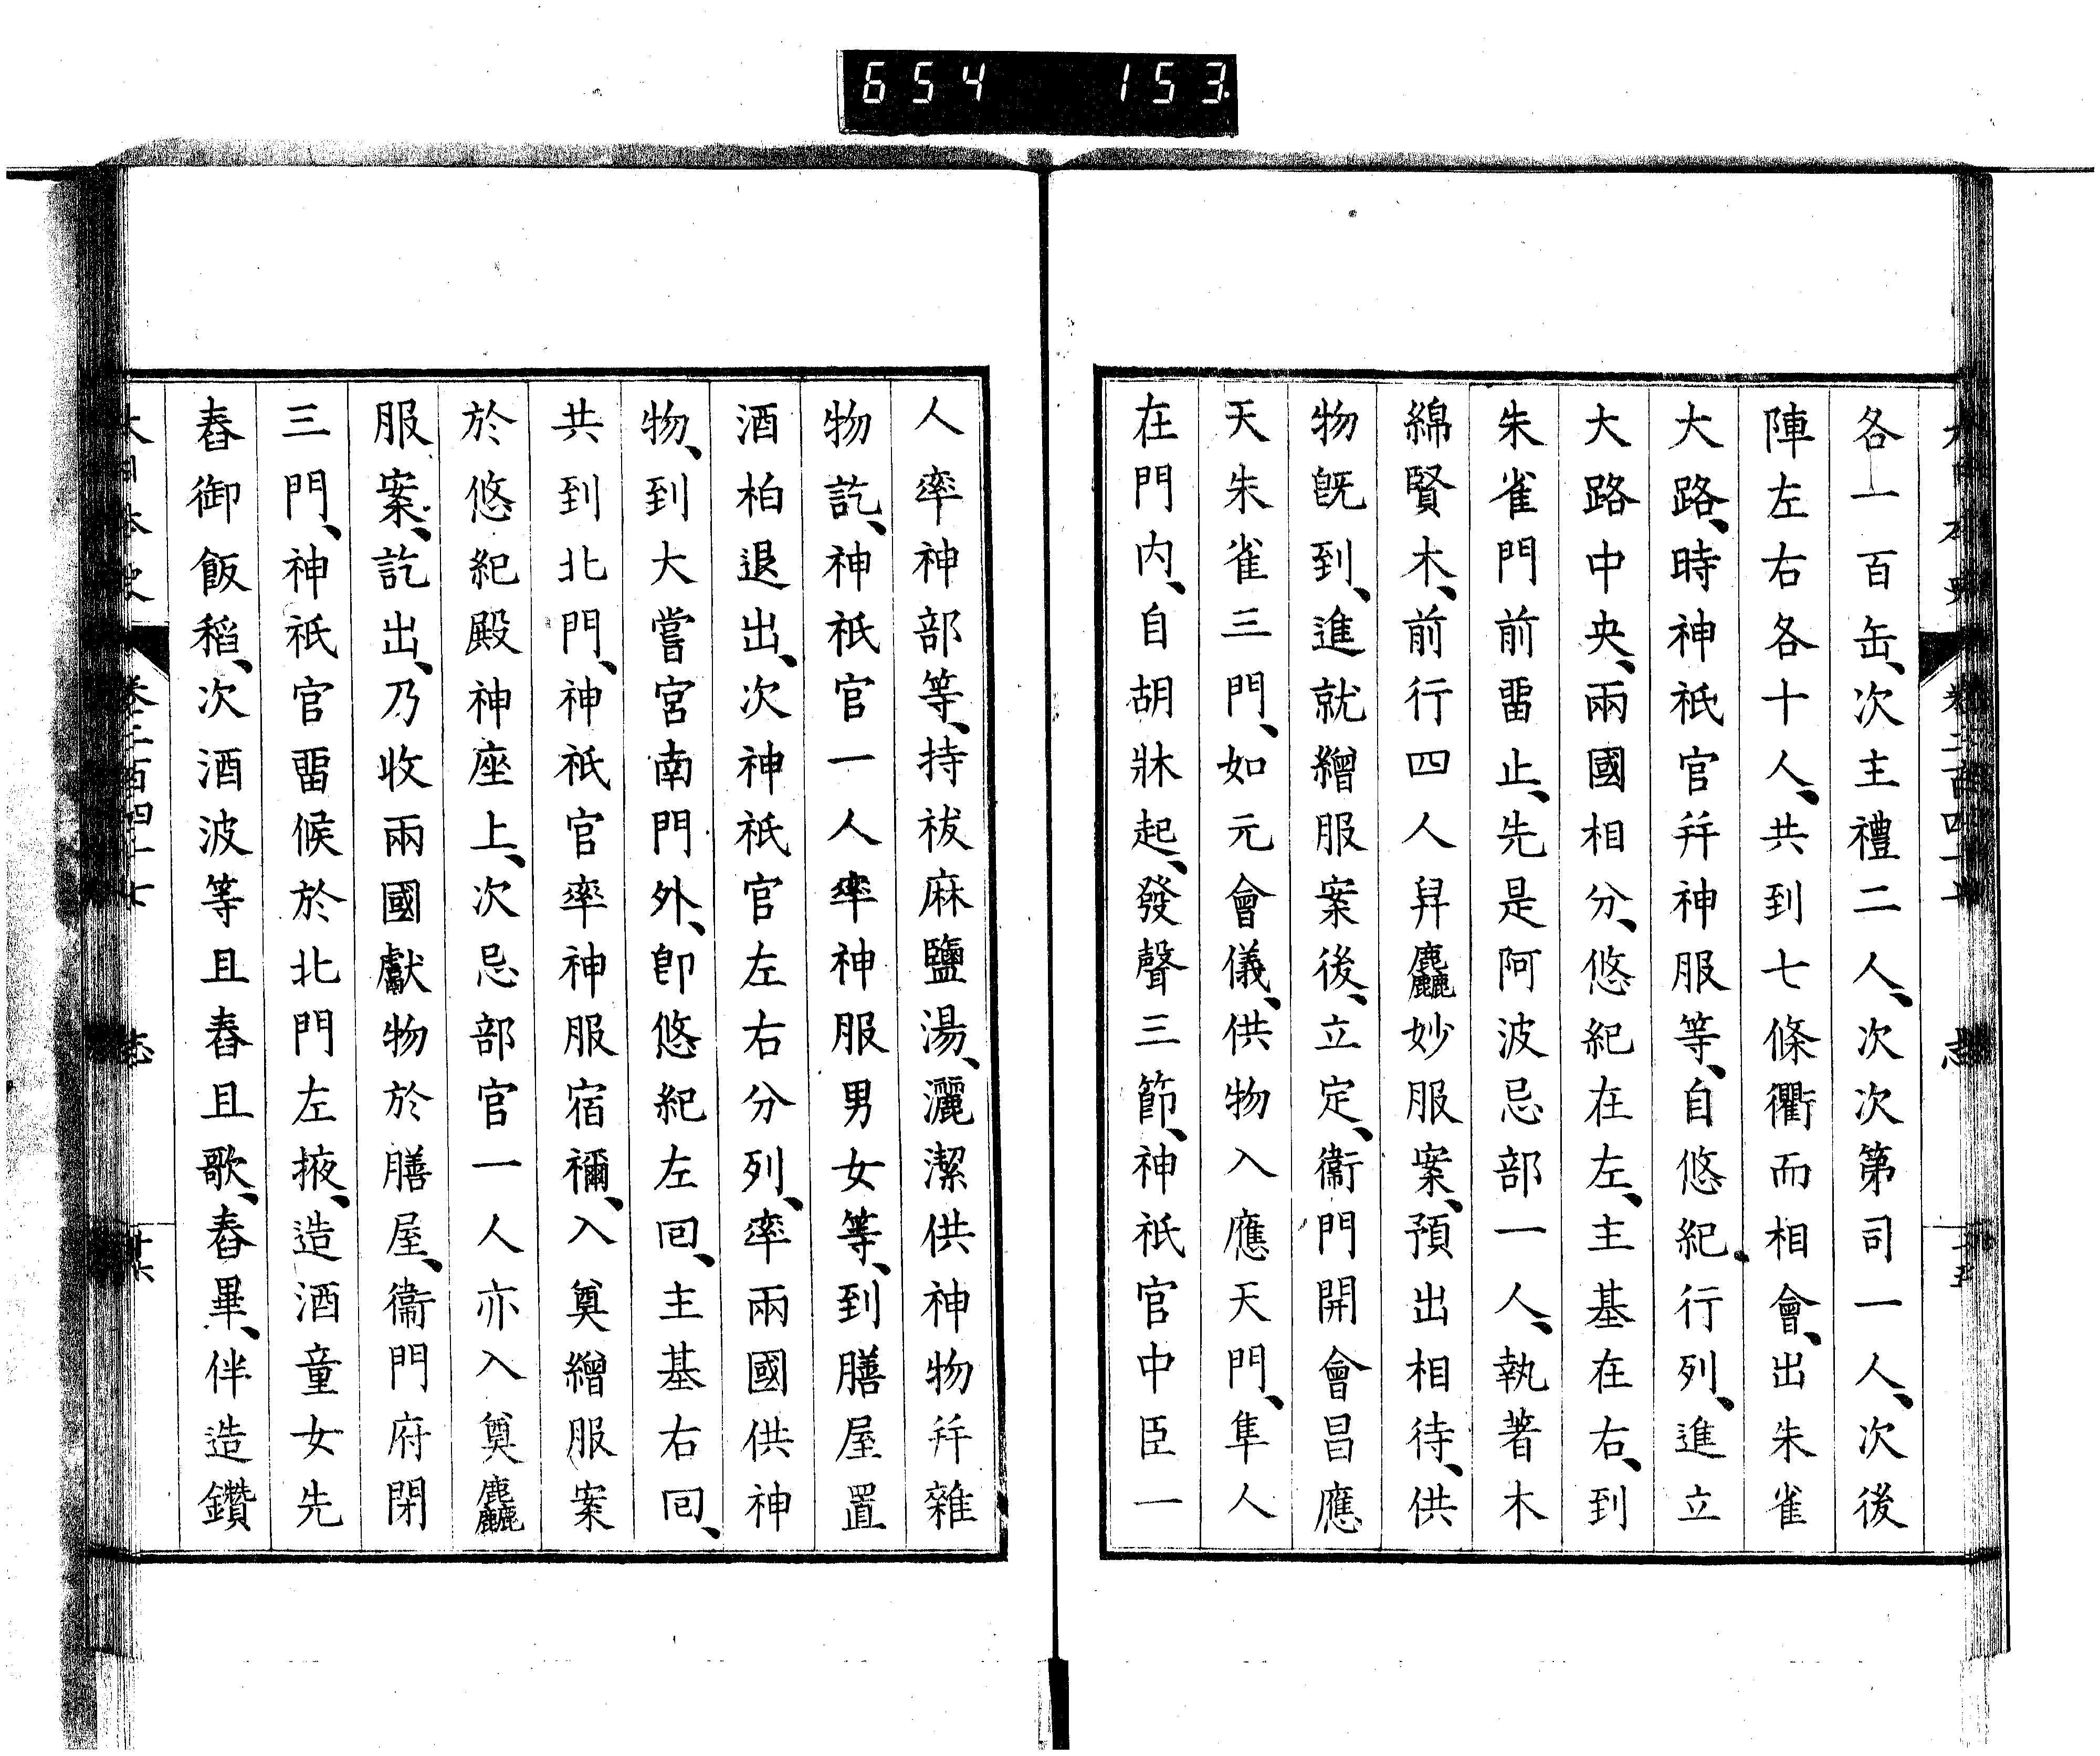 654 153
各一百缶、次主禮二人、次次第司一人、次後
陣左右各十人、共到七條衢而相會、出朱雀
大路、時神祇官幷神服等、自悠紀行列、進立
大路中央、兩國相分、悠紀在左、主基在右、到
朱雀門前畱止、先是阿波忌部一人、執著木
綿賢木、前行四人舁麤妙服案、預出相待、供
物旣到、進就繒服案後、立定、衞門開會昌應
天朱雀三門、如元會儀、供物入應天門、隼人
在門内、自胡牀起、發聲三節、神祇官中臣一
人率神部等、持祓麻鹽湯、灑潔供神物幷雜
物訖、神祇官一人率神服男女等、到膳屋置
酒柏退出、次神祇官左右分列、率兩國供神
物、到大嘗宮南門外、卽悠紀左回、主基右回、
共到北門、神祇官率神服宿禰、入奠繒服案
於悠紀殿神座上、次忌部官一人亦入奠麤
服案、訖出、乃收兩國獻物於膳屋、衞門府閉
三門、神祇官畱候於北門左掖、造酒童女先
舂御飯稻、次酒波等且舂且歌、舂畢、伴造鑽
大日本史 卷二百四十七 志